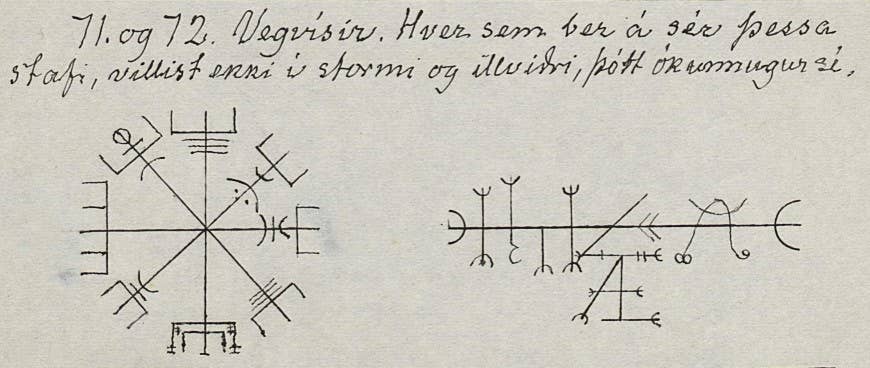 71. og 72. Vegvísir. Hver sem ber á sér þessa
stafi, villist ekki í stormi og illviðri, þótt ókunnugur sé.